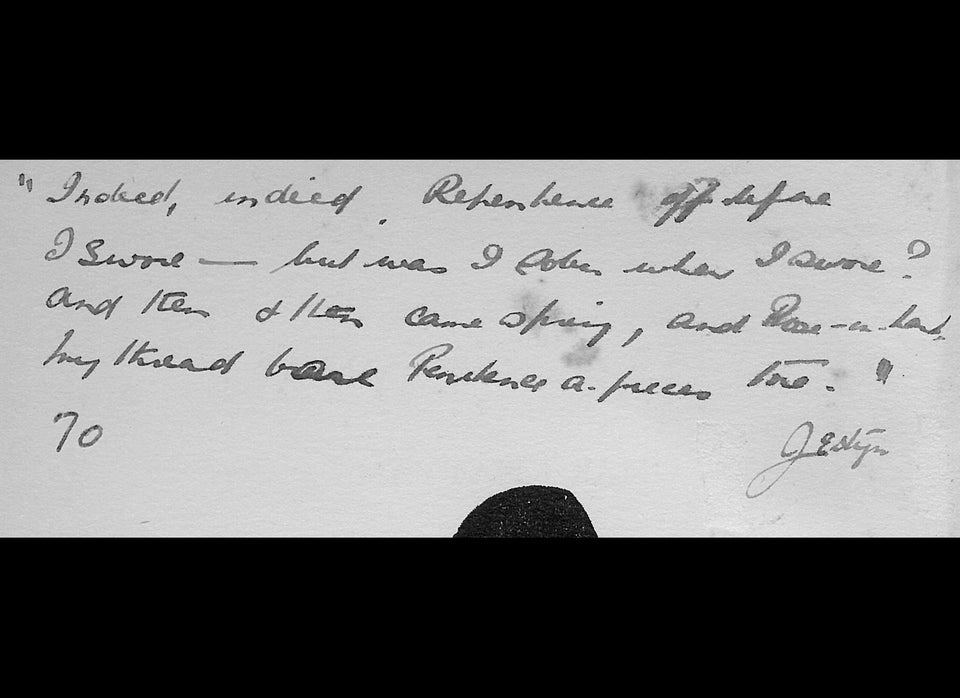 "Indeed, indeed, Repentence off before
I swore — but was I sober when I swore?
and then & then came spring, and Rose-in-hand,
my thread bare Penitence a-pieces tore."
70
JEstyn